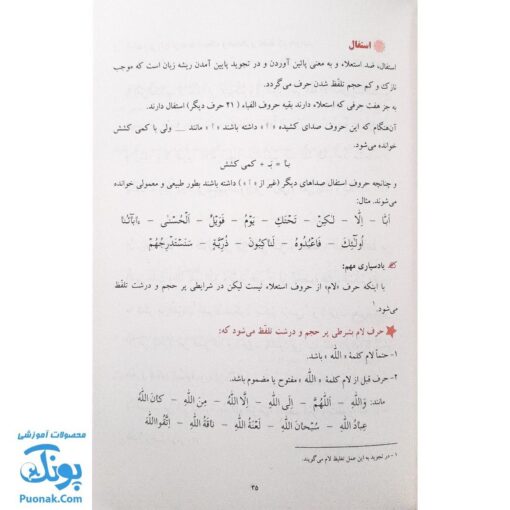 استفال
استفال، ضد استعلاء و به معنی پائین آوردن و در تجوید پایین آمدن ریشه زبان است که موجب
نازک و کم حجم تلفّظ شدن حرف می‌گردد.
به جز هفت حرفی که استعلاء دارند بقیه حروف الفباء ( ۲۱ حرف دیگر ) استفال دارند.
آن‌هنگام که این حروف صدای کشیده « ـَا » داشته باشند « ـَا » مانند ولی با کمی کشش
خوانده می‌شود.
بـا = بَـ + کمی کشش
و چنانچه حروف استفال صداهای دیگر (غیر از « ـَا » ) داشته باشند بطور طبیعی و معمولی خوانده
می‌شوند. مثال:
إلّا – لکِنْ – تَحْتَكِ – یَوْمُ – فَوَیْلٌ – اَلْحُسْنی –
اُولـٰئِكَ – فَاعْبُدُوهُ – لَناکِبُونَ – ذُرِّیَّةٍ – سَنَسْتَدْرِجُهُمْ
یادسپاری مهم:
با اینکه حرف «لام» از حروف استعلاء نیست لیکن در شرایطی پر حجم و درشت تلفّظ
می‌شود.۱
حرف لام بشرطی پر حجم و درشت تلفّظ می‌شود که:
۱- حتماً لام کلمهٔ « اللّٰه » باشد.
۲- حرف قبل از لام کلمهٔ « اللّٰه » مفتوح یا مضموم باشد.
مانند: وَاللّٰهِ – اَللّٰهُمَّ – اِلَی اللّٰهِ – اِلَّا اللّٰهُ – مِنَ اللّٰهِ – کانَ اللّٰهُ
عِبادُ اللّٰهِ – سُبْحانَ اللّٰهِ – لَعْنَةُ اللّٰهِ – ناقَةُ اللّٰهِ – اِتَّقُوا اللّٰهَ
۱- در تجوید به این عمل تغلیظ لام می‌گویند.
۳۵
محصولات آموزشی
پونک
Puonak.Com